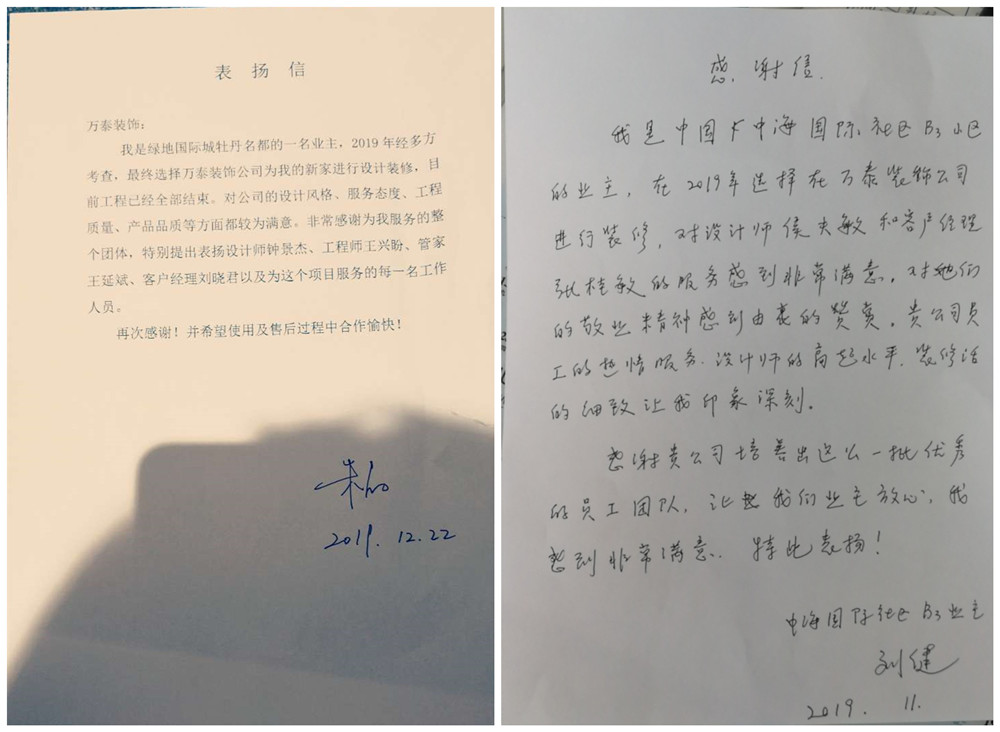 表扬信
万泰装饰：
我是绿地国际城牡丹名都的一名业主，2019年经多方
考查，最终选择万泰装饰公司为我的新家进行设计装修，目
前工程已经全部结束。对公司的设计风格、服务态度、工程
质量、产品品质等方面都较为满意。非常感谢为我服务的整
个团体，特别提出表扬设计师钟景杰、工程师王兴盼、管家
王延斌、客户经理刘晓君以及为这个项目服务的每一名工作
人员。
再次感谢！并希望使用及售后过程中合作愉快！
朱
2019.12.22
感谢信
我是中国 中海国际社区B3小区
的业主，在2019年选择在万泰装饰公司
进行装修，对设计师侯 敏和客户经理
张桂敏的服务感到非常满意，对她们
的敬业精神感到由衷的赞赏，贵公司员
工的热情服务.设计师的高超水平，装修活
的细致让我印象深刻。
感谢贵公司培养出这么一批优秀
的员工团队，让 我们业主放心，我
感到非常满意. 特此表扬！
中海国际社区B3业主
刘健
2019. 11.